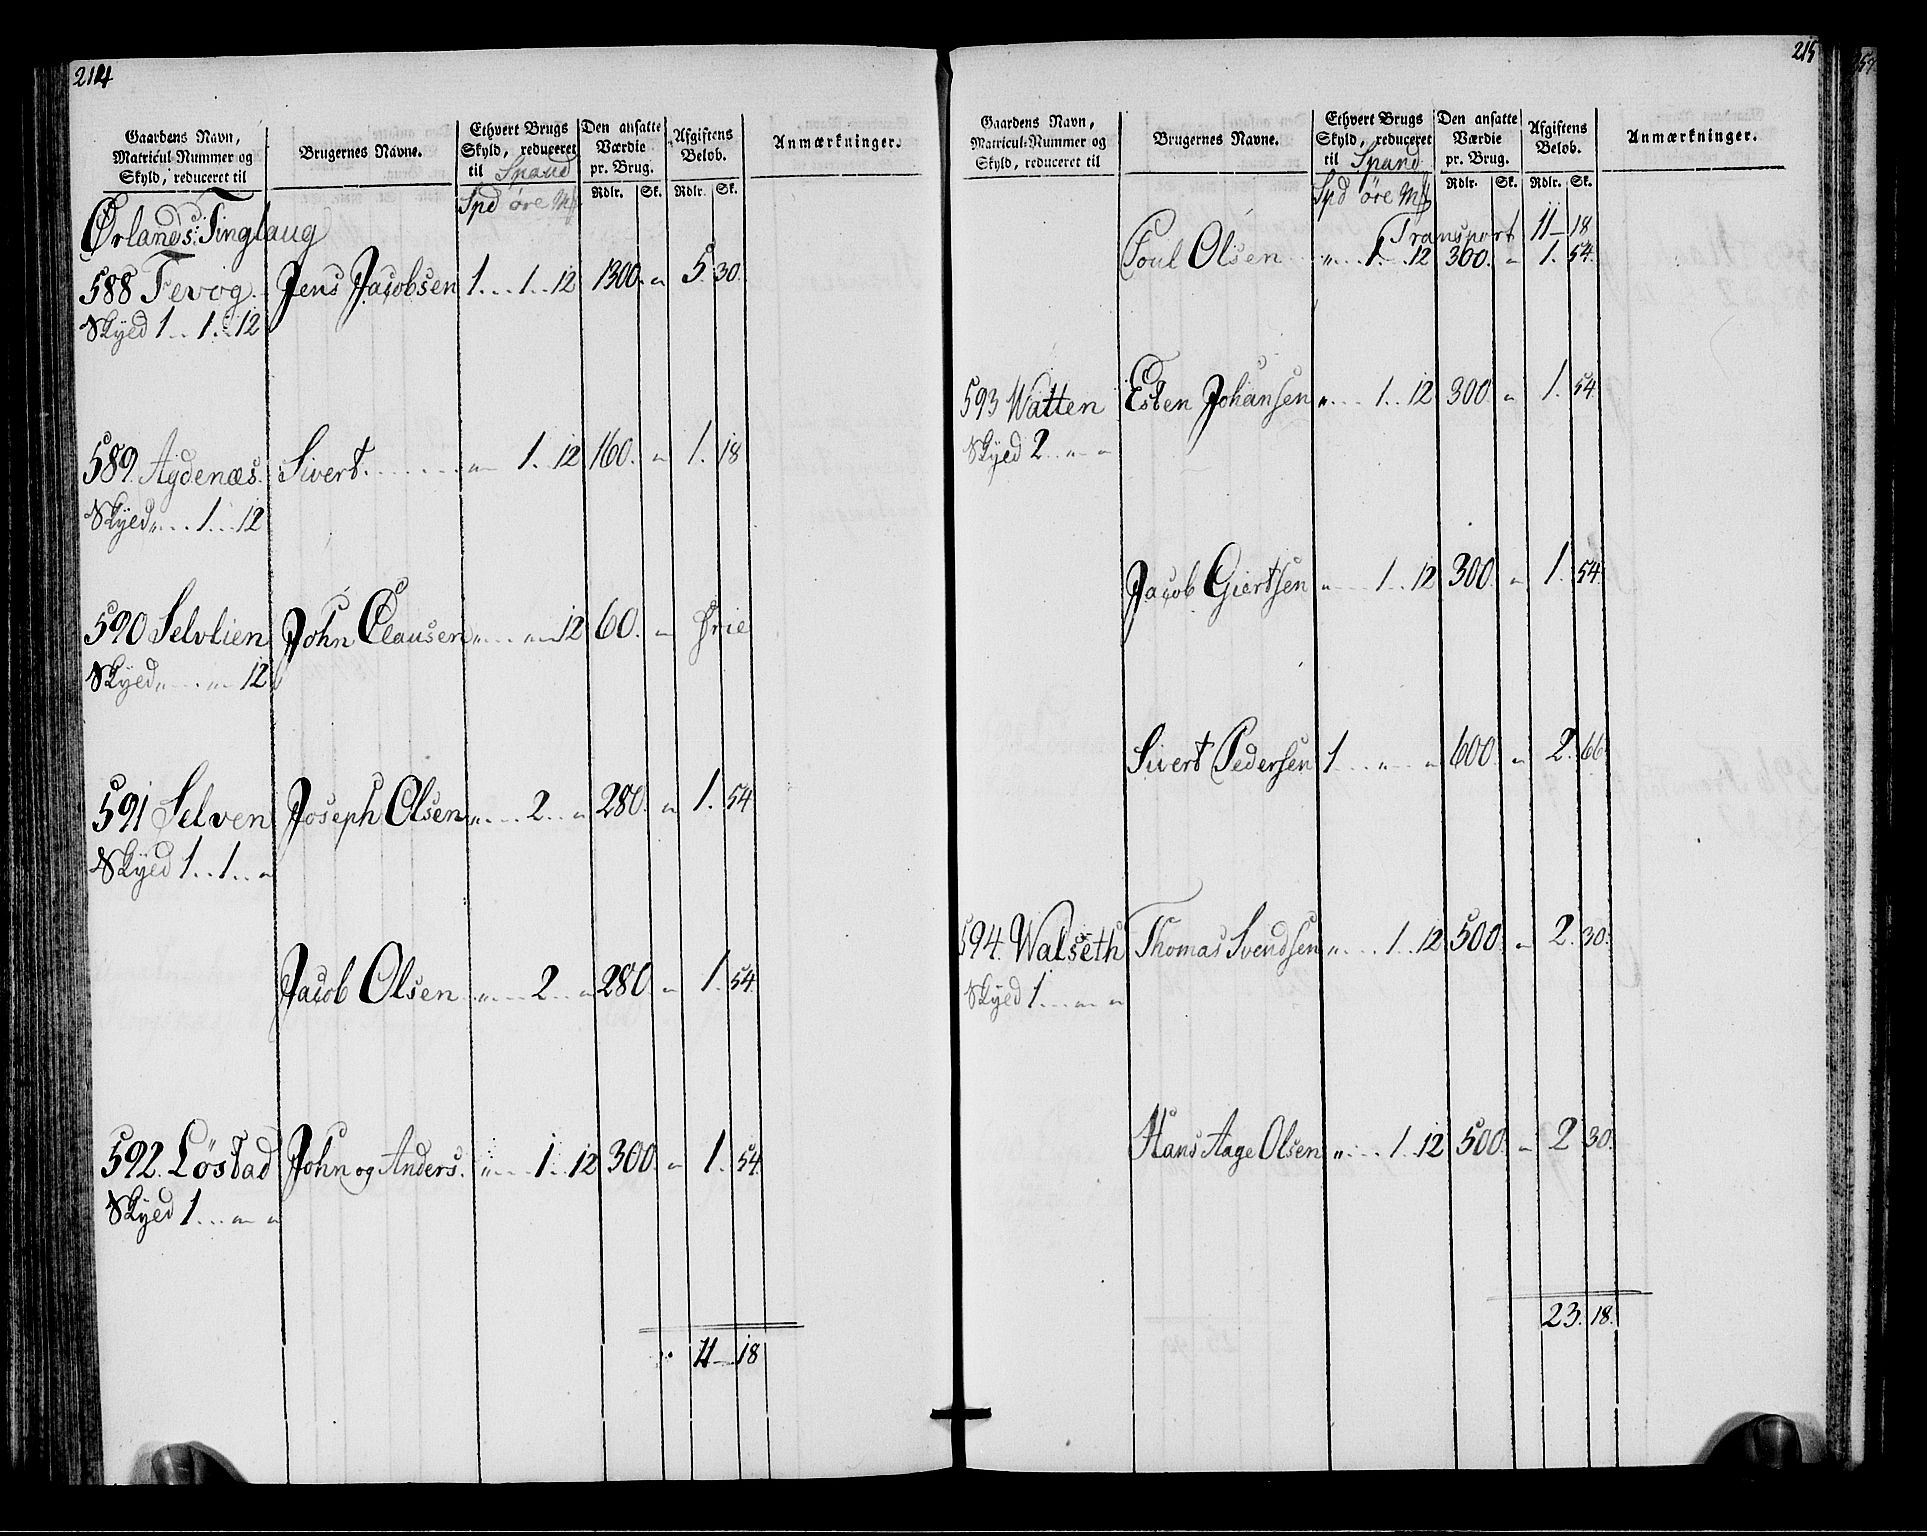 214
Gaardens Navn, Matricul-Nummer og Skyld, reduceret til
Brugernes Navne.
Ethvert Brugs Skyld, reduceret til Spand
Den ansatte Værdie pr. Brug.
Afgiftens Belob.
Anmærkninger.
Rdlr. Sk. Rdlr. Sk.
Spd øre
Ørlands Tinglaug
588 Fevog Jens Jacobsen 1 . . 1 . . 12 1300. " 5. 30.
Skyed 1 . . 1 . . 12
589. Aydenæs. Sivert. . . . . " 1 . . 12 160. " 1. 18
Skyed " . . 1 . . 12
590 Selvlien John Clausen " . . " 12 60. " frie
Skyed " . . " 12
591 Selven Joseph Olsen " . . 2 . . " 280. " 1. 54
Skyed 1 . . 1 . . "
Jacob Olsen " . . 2 . . " 280. " 1. 54.
592. Løstad John og Anders. " . . 1 . . 12 300. " 1. 54
Skyed 1 . . " "
11 — 18
215
Gaardens Navn, Matricul-Nummer og Skyld, reduceret til
Brugernes Navne.
Ethvert Brugs Skyld, reduceret til Spand
Den ansatte Værdie pr. Brug.
Afgiftens Belob.
Anmærkninger.
Rdlr. Sk. Rdlr. Sk.
Spd øre
Transport 11 — 18
Poul Olsen " . . 1 . . 12 300. " 1. 54.
593 Watten Esten Johansen " . . 1 . . 12 300 " 1. 54
Skyed 2 . . " "
Jacob Giertsen " . . 1 . . 12 300. " 1. 54.
Sivert Pedersen 1 . . " " 600. " 2. 66
594. Walseth Thomas Svendsen " . . 1 . . 12 500. " 2. 30.
Skyed 1 . . " "
Hans Aage Olsen " . . 1 . . 12 500. " 2 30.
23. 18.